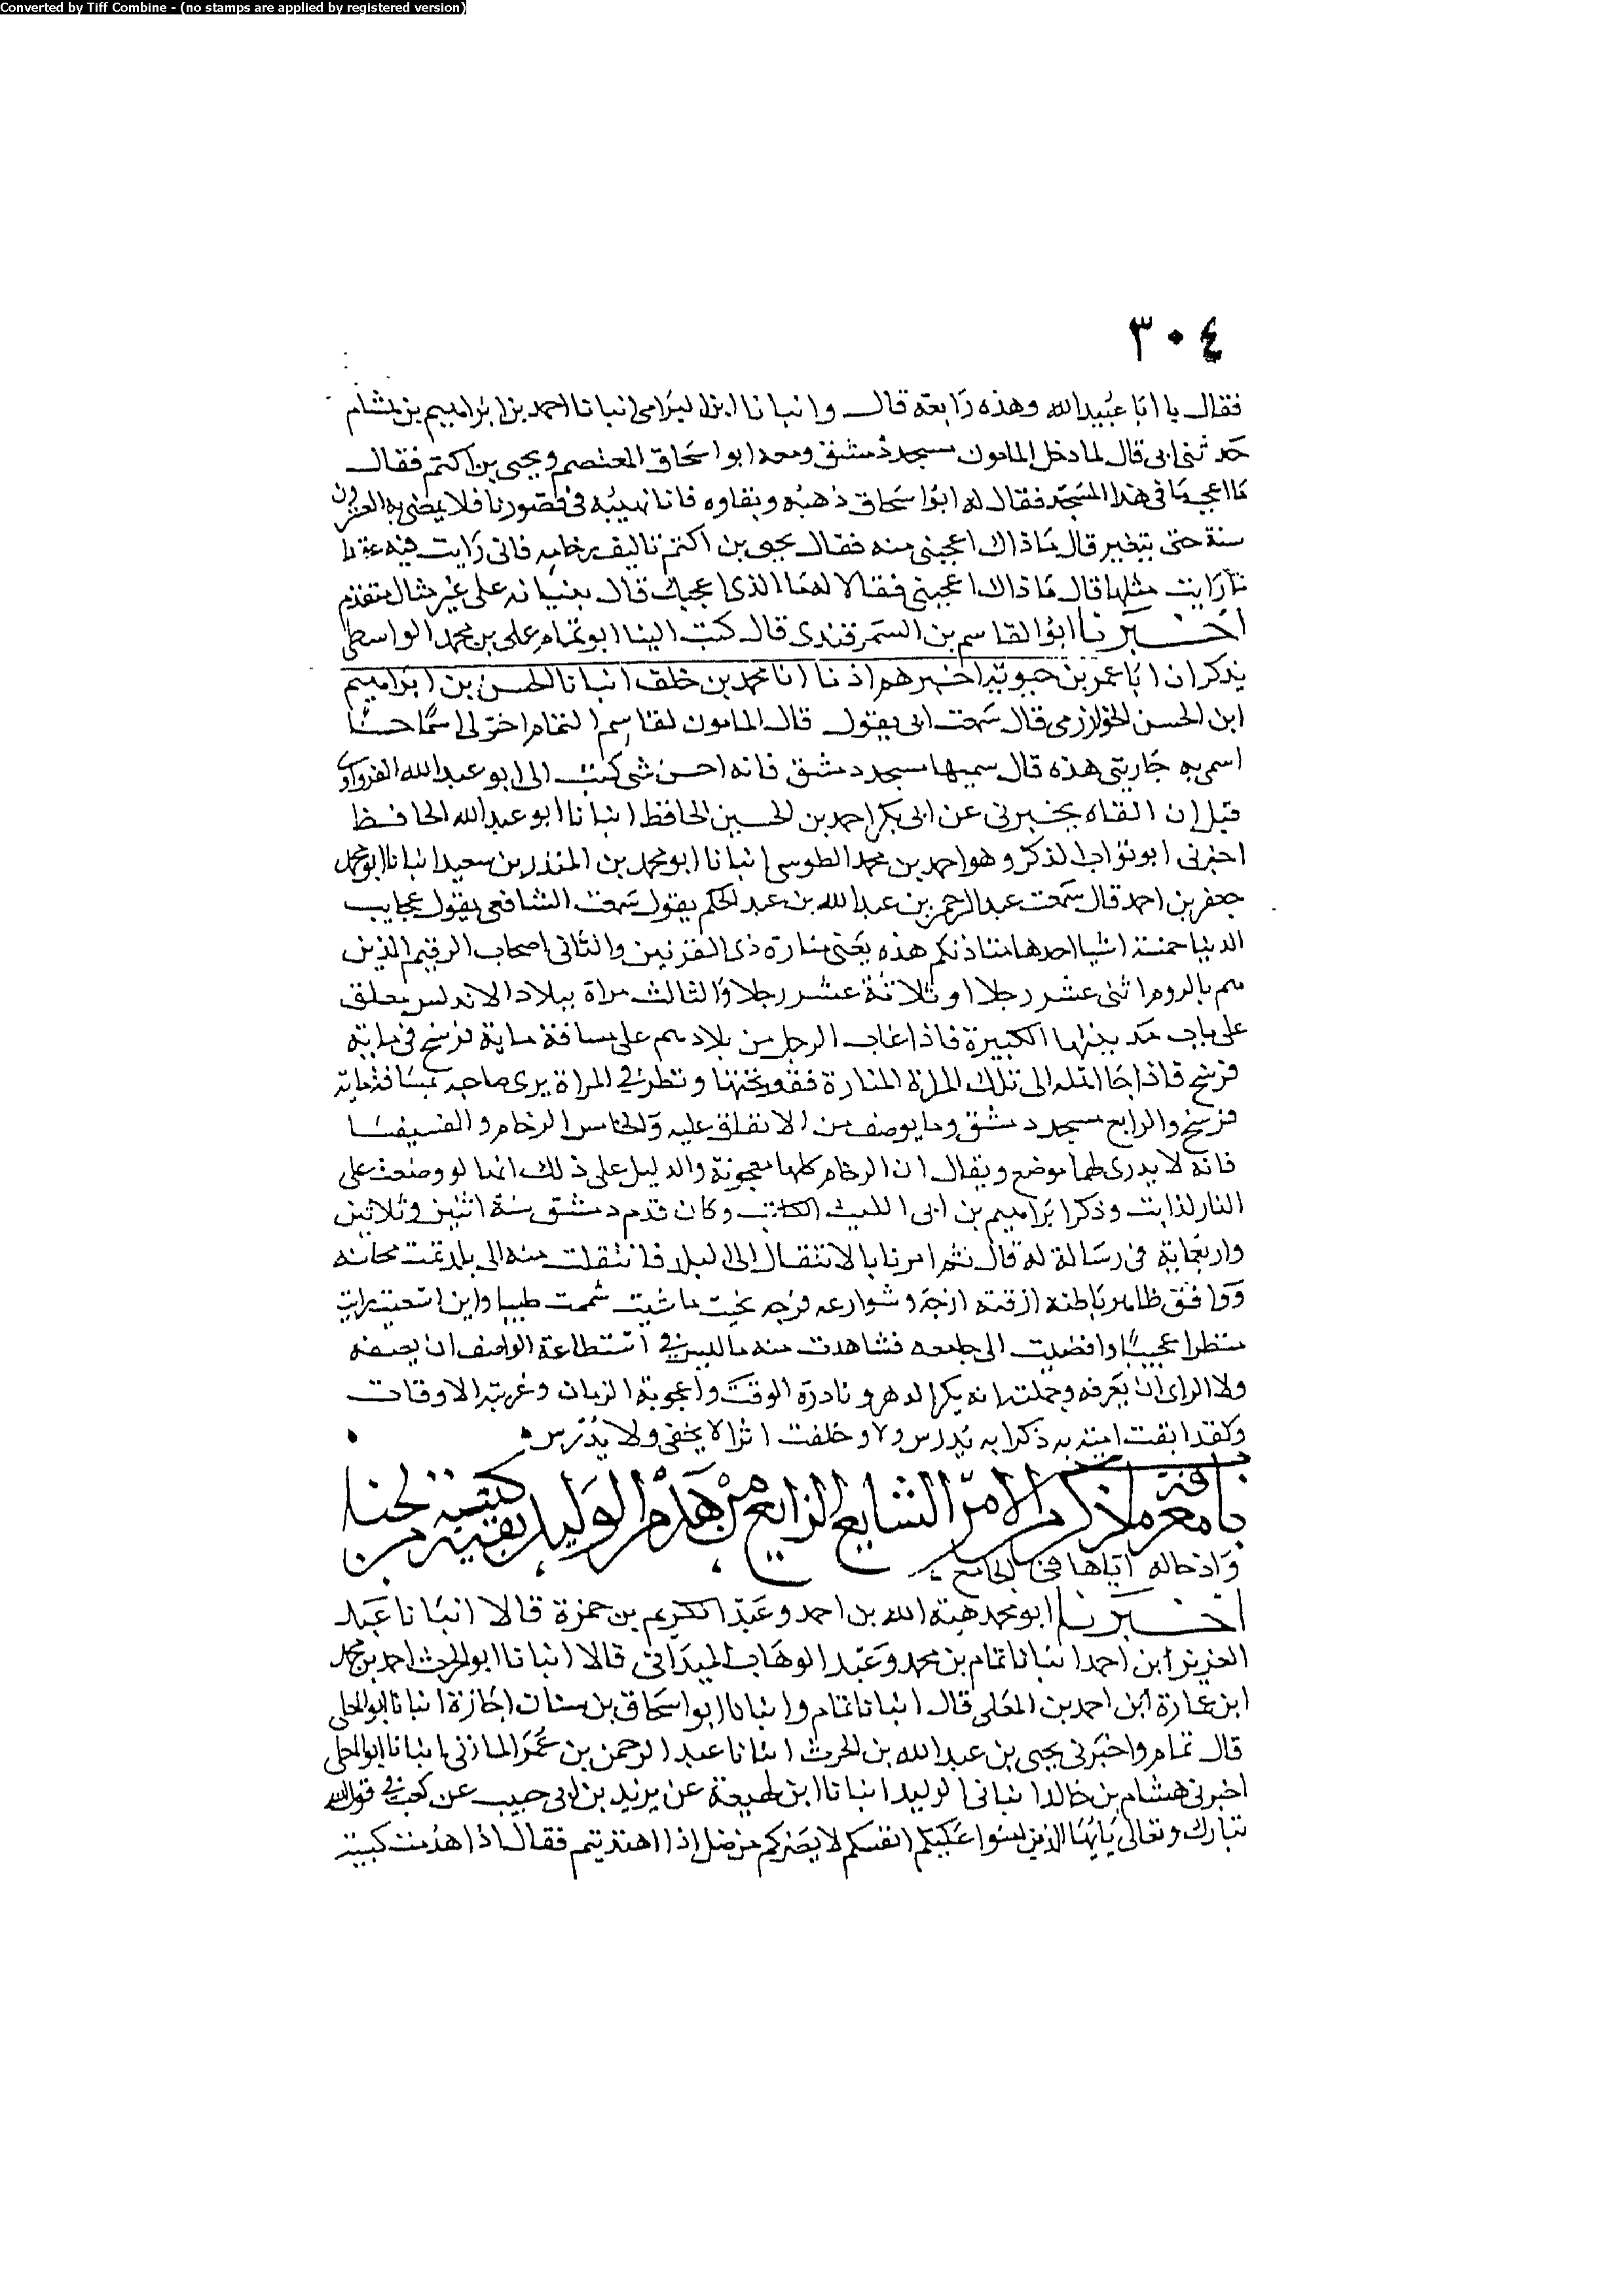 Converted by Tiff Combine - (no stamps are applied by registered version)
٣٠٤
فقال يا ابا عبيد الله وهذه رابعة قال وانبانا ابن البرامى انبانا احمد بن ابراهيم بن هشام
حدثنى ابى قال لما دخل المامون مسجد دمشق ومعه ابو اسحاق المعتصم ويحيى بن اكثم فقال
ما اعجب ما فى هذا المسجد فقال له ابو اسحاق ذهبه وبقاوه فانا نهيبه فى قصورنا فلا يمضى به العشرون
سنة حتى يتغير قال ما ذاك اعجبنى منه فقال يحيى بن اكثم تاليف رخامه فانى رايت فيه عقدا
ما رايت مثلها قال ما ذاك اعجبنى فقالا لهما الذى اعجبك قال بنيانه على غير مثال متقدم
اخبرنا ابو القاسم بن السمرقندى قال كتب الينا ابو تمام على بن محمد الواسطى
يذكر ان ابا عمر بن حيويه اخبرهم اذنا انا محمد بن خلف انبانا الحسن بن ابراهيم
ابن الحسن الخوارزمى قال سمعت ابى يقول قال المامون لقاسم التمام اختر لى اسما حسنا
اسمى به جاريتى هذه قال سميها مسجد دمشق فانه احسن شى كتب الى ابو عبد الله الفزواوى
قبل ان القاه يخبرنى عن ابى بكر احمد بن الحسين الحافظ انبانا ابو عبد الله الحافظ
اخبرنى ابو تراب المذكر وهو احمد بن محمد الطوسى انبانا ابو محمد بن المنذر بن سعيد انبانا ابو محمد
جعفر بن احمد قال سمعت عبد الرحمن بن عبد الله بن عبد الحكم يقول سمعت الشافعى يقول عجايب
الدنيا خمسة اشيا احدها منتاذنكم هذه يعنى منارة ذى القرنين والثانى اصحاب الرقيم الذين
هم بالروم اثنى عشر رجلا او ثلاثة عشر رجلا والثالث مراة ببلاد الاندلس معلق
على باب مدينتها الكبيرة فاذا غاب الرجل من بلادهم على مسافة ماية فرسخ فى ماية
فرسخ فاذا جا اهله الى تلك المنارة فقعد تحتها ونظر فى المراة يرى صاحبه بمسافة ماية
فرسخ والرابع مسجد دمشق وما يوصف من الانفاق عليه والخامس الرخام والفسيفسا
فانه لا يدرى لهما موضع ويقال ان الرخام كلها معجونة والدليل على ذلك انها لو وضعت على
النار لذابت وذكر ابراهيم بن ابى الليث الكاتب وكان قدم دمشق سنة اثنين وثلاثين
واربعماية فى رسالة له قال ثم امرنا بالانتقال الى البلد فانتقلت منه الى بلد تمت محاسنه
ووافق ظاهره باطنه ازقته ارجة وشوارعه فرجه بحيث ما شيت شممت طيبا واين اتجهت رايت
منظرا عجيبا وافضيت الى جامعه فشاهدت منه ما ليس فى استطاعة الواصف ان يصفه
ولا الراى ان يعرفه وجملته انه بكر الدهر ونادرة الوقت واعجوبة الزمان وغريبة الاوقات
ولقد ابقت اميه به ذكرا به يدرس ولا وخلفت اثرا لا يخفى ولا يدرس
باب معرفة ما ذكر من الامر الشايع الزايع من هدم الوليد بقية من كنيسة لحنا
وادخاله اياها فى الجامع
اخبرنا ابو محمد هبة الله بن احمد وعبد الكريم بن حمزة قالا انبانا عبد
العزيز ابن احمد انبانا تمام بن محمد وعبد الوهاب الميدانى قالا انبانا ابو الحرث احمد بن محمد
ابن عمارة ابن احمد بن المعلى قال انبانا تمام وانبانا ابو اسحاق بن سنان اجازة انبانا ابو المعلى
قال تمام واخبرنى يحيى بن عبد الله بن الحرث انبانا عبد الرحمن بن عمر المازنى انبانا ابو المعلى
اخبرنى هشام بن خالد انبانى الوليد انبانا ابن لهيعة عن يزيد بن ابى حبيب عن كعب فى قول الله
تبارك وتعالى يايها الذين امنوا عليكم انفسكم لا يضركم من ضل اذا اهتديتم فقال اذا هدمت كنيسة